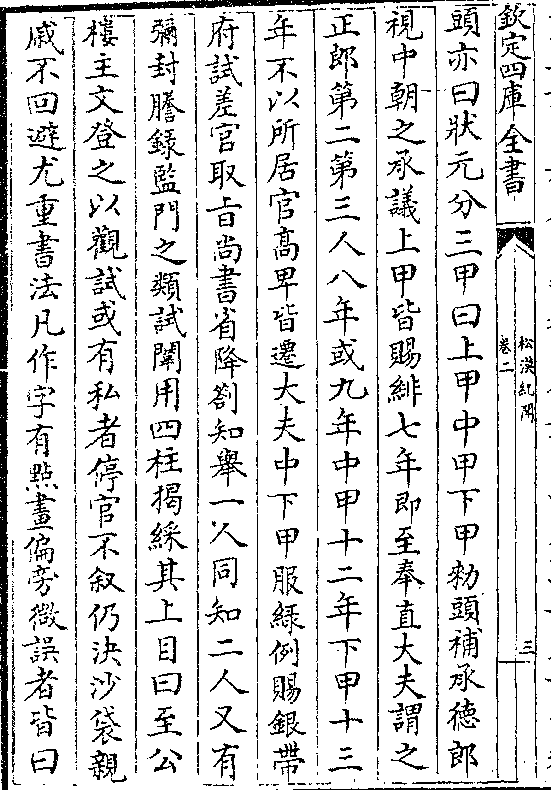 欽定四庫全書
松漠紀聞
卷二
三
頭亦曰狀元分三甲曰上甲中甲下甲勅頭補承德郎
視中朝之承議上甲皆賜緋七年即至奉直大夫謂之
正郎第二第三人八年或九年中甲十二年下甲十三
年不以所居官高卑皆遷大夫中下甲服緑例賜銀帶
府試差官取旨尚書省降劄知舉一人同知二人又有
彌封謄録監門之類試闈用四柱揭綵其上目曰至公
樓主文登之以觀試或有私者停官不叙仍決沙袋親
戚不回避尤重書法凡作字有點畫偏旁微誤者皆曰